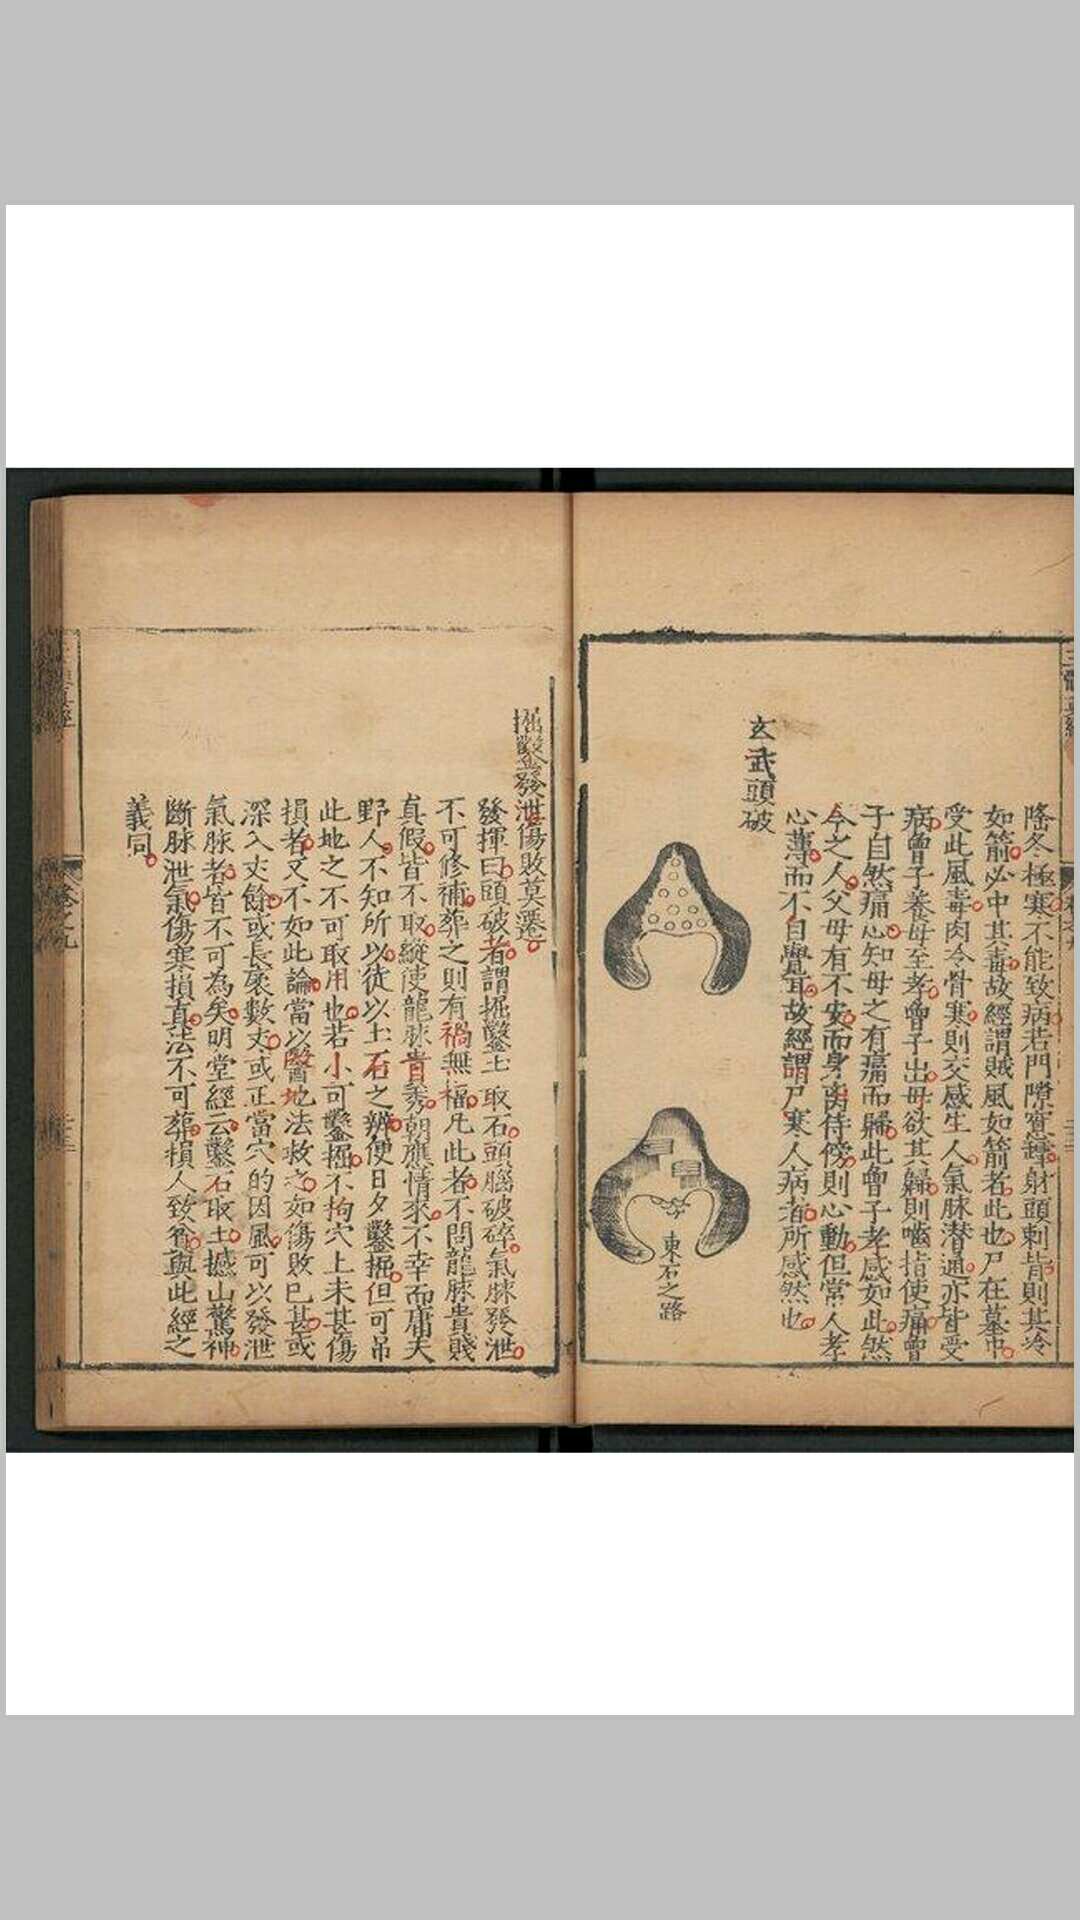 隆冬極寒不能致病若門隙窓罅射頭刺背則其冷
如箭必中其毒故經謂賊風如箭者此也尸在墓中
受此風毒肉冷骨寒則交感生人氣脉潜通亦皆受
病曾子養母至孝曾子出母欲其歸則嚙指使痛曾
子自然痛心知母之有痛而歸此曾子孝感如此然
今之人父母有不安而身离侍傍則心動但常人孝
心薄而不自覺耳故經謂尸寒人病者所感然也
玄武頭破
東石之路
掘鑿發泄傷敗莫遷
發揮曰頭破者謂掘鑿土取石頭腦破碎氣脉發泄
不可修補葬之則有禍無福凡此者不問龍脉貴賤
真假皆不取縱使龍脉貴秀朝應情來不幸而庸夫
野人不知所以徒以土石之辨便日夕鑿掘但可吊
此地之不可取用也若小可鑿掘不拘穴上未甚傷
損者又不如此論當以醫地法救之如傷敗已甚或
深入丈餘或長袤數丈或正當穴的因風可以發泄
氣脉者皆不可為矣明堂經云鑿石取土撼山驚神
斷脉泄氣傷寒損真法不可葬損人致發與此經之
義同
卷之九